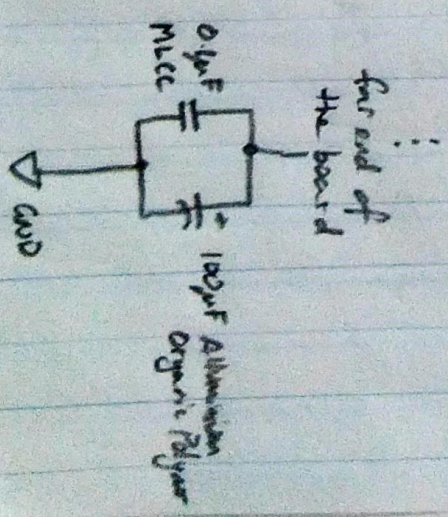 ⋮
far end of
the board
0.1µF
MLCC
+
100µF Alluminium
Organic Polymer
GND